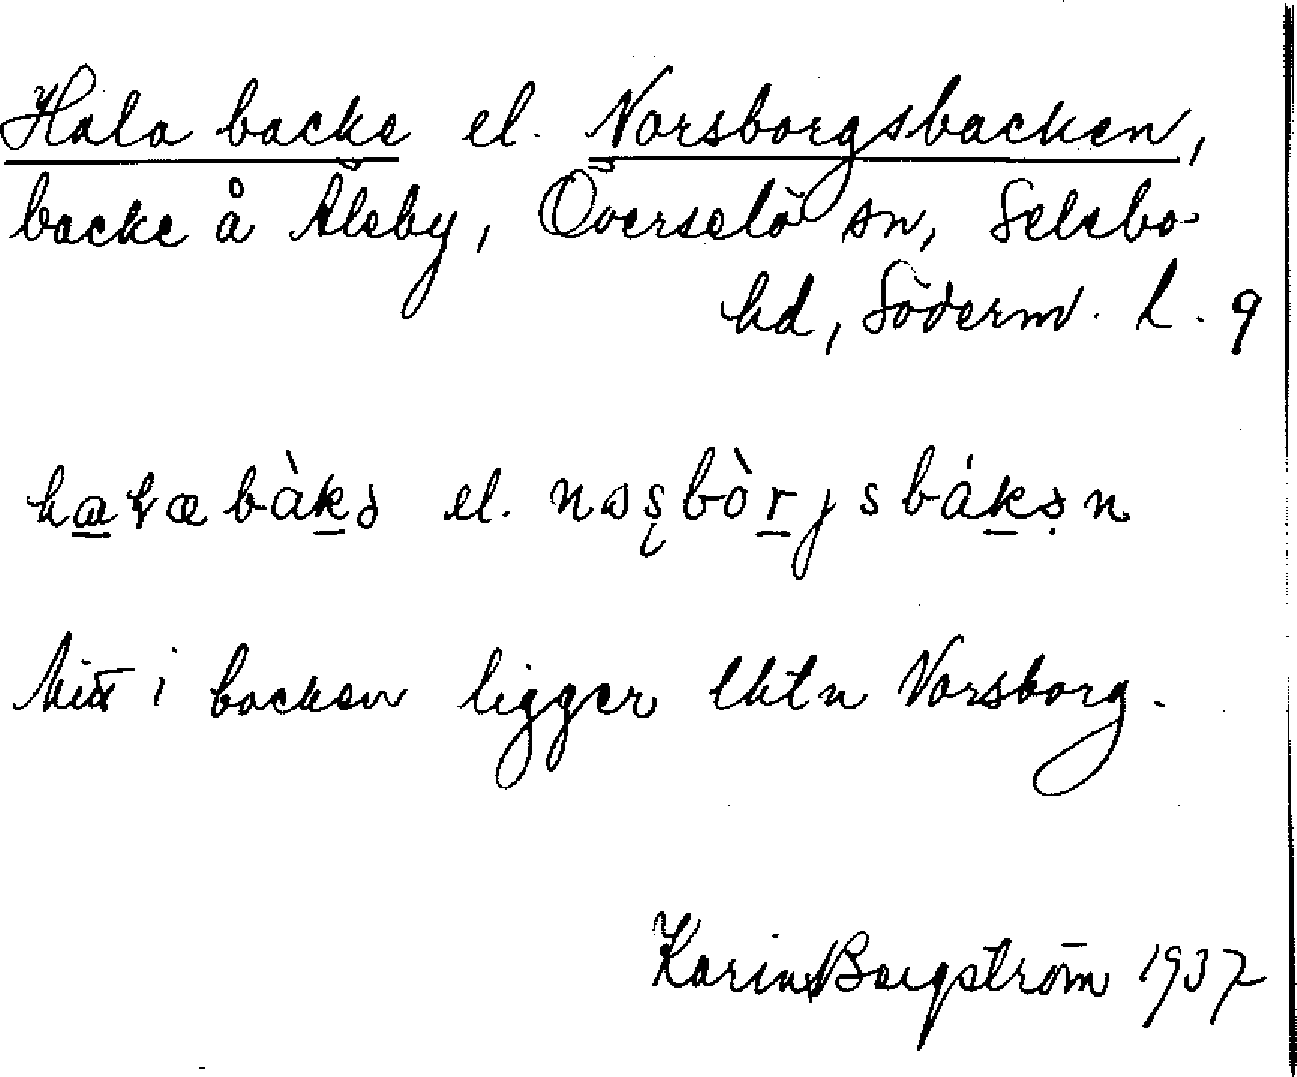 Hala backe el. Norsborgsbacken,
backe å Älsby, Överselö sn, Selebo
hd, Söderm. l. 9
el.
Mitt i backen ligger lhtn Norsborg.
Karin Borgström 1937